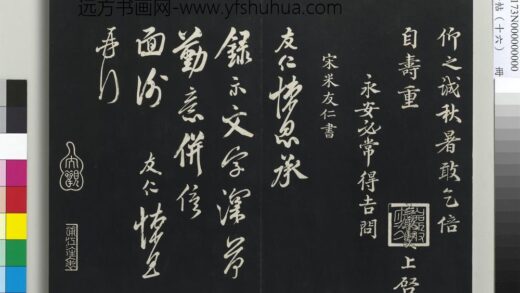 远方书画网-www.yfshuhua.com
173N000000000
帖（十六） 册
仰之诚秋暑敢乞倍
自壽重
永安必常得吉問
上啓
宋米友仁書
友仁悚息承
録示文字深荷
勤意併俟
面謝
友仁悚息